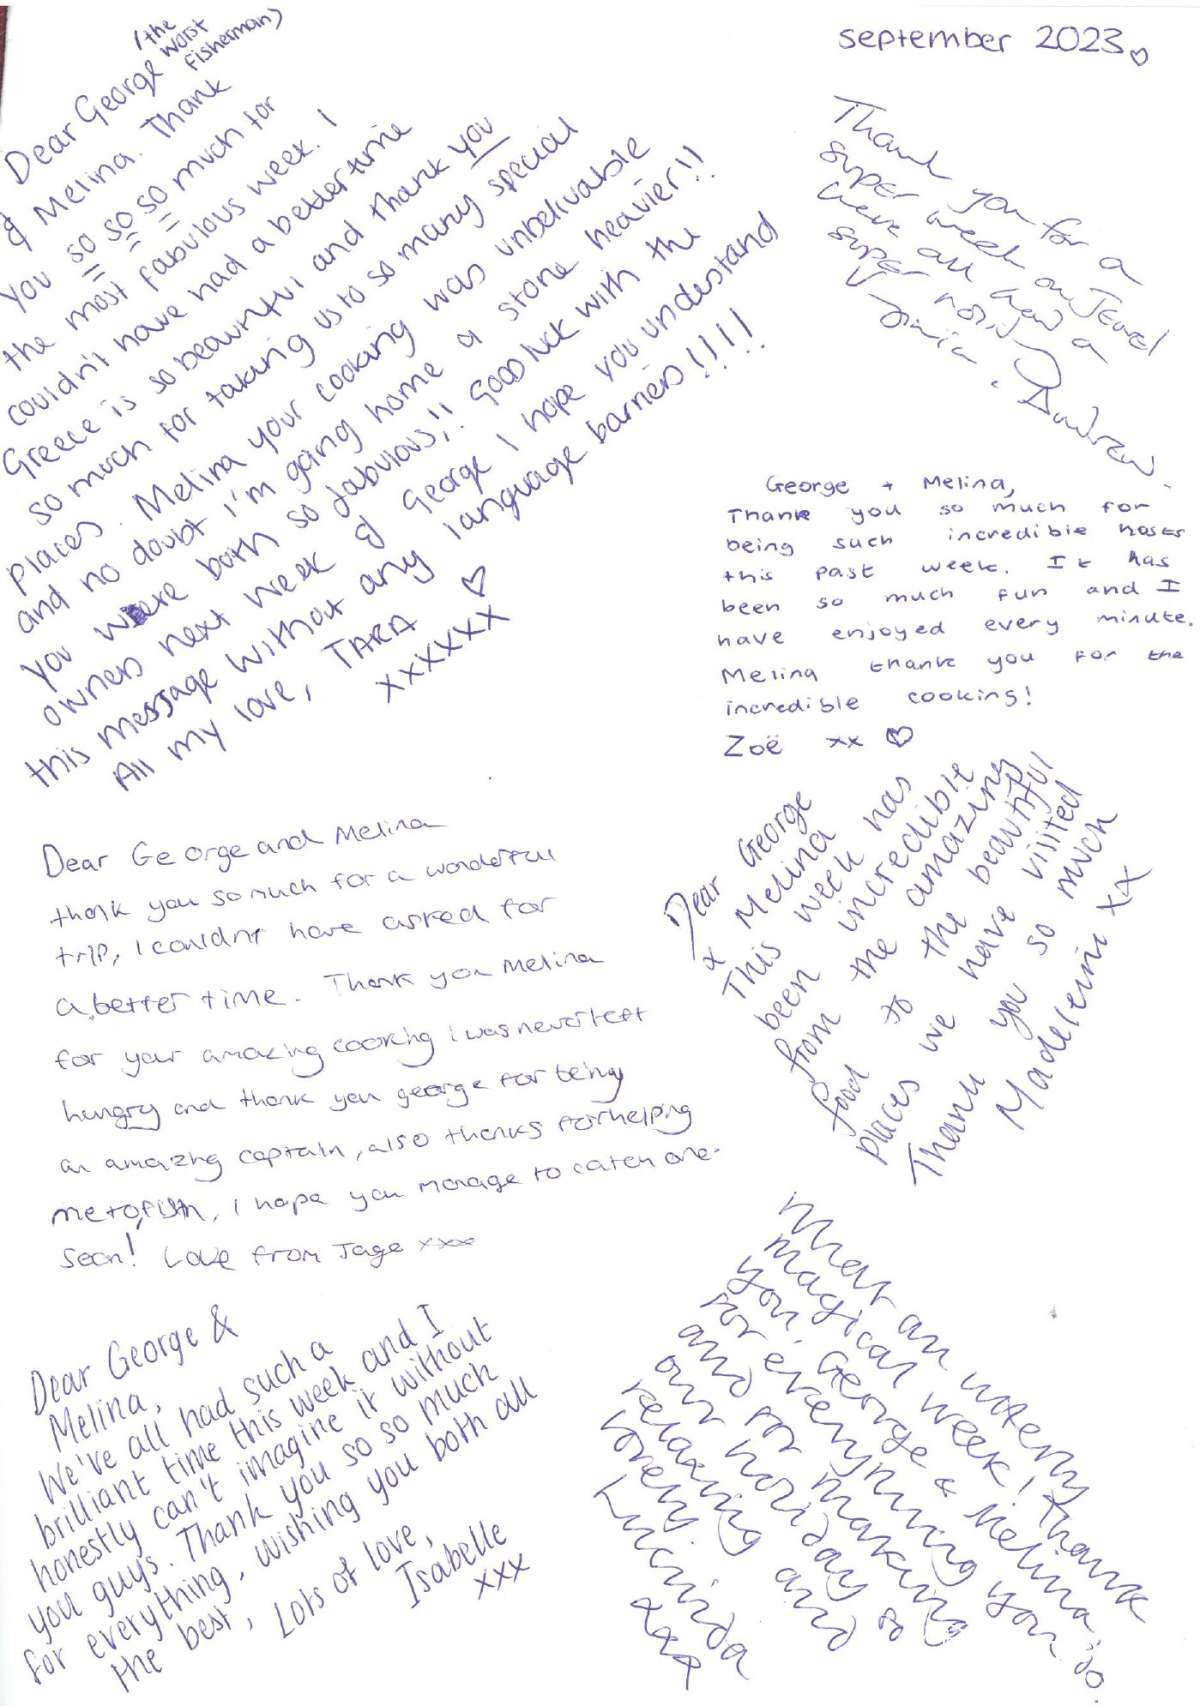 september 2023
Dear George (the
worst
fisherman)
& Melina. Thank
you so so so much for
the most fabulous week. I
couldn't have had a better time
Greece is so beautiful and thank you
so much for taking us to so many special
places. Melina your cooking was unbelivable
and no doubt i'm going home a stone heavier!!
You were both so fabulous!! Good luck with the
owners next week & George I hope you undestand
this message without any language barriers!!!!
All my love, TARA
xxxxxx
Thank you for a
super week on Jewel
We've all had a
super
Andrew.
George + Melina,
Thank you so much for
being such incredible hosts
this past week. It has
been so much fun and I
have enjoyed every minute.
Melina thank you for the
incredible cooking!
Zoë xx
Dear George and Melina
thank you so much for a wonderful
trip, I couldnt have asked for
a better time. Thank you Melina
for your amazing cooking i was never left
hungry and thank you george for being
an amazing captain, also thanks for helping
me to fish, I hope you manage to catch one
soon! Love from Jage xxxx
Dear George
& Melina
This week has
been incredible
from the amazing
food to the beautiful
places we have visited
Thank you so much
Madeleine xx
Dear George &
Melina,
We've all had such a
brilliant time this week and I
honestly can't imagine it without
you guys. Thank you so so much
for everything, wishing you both all
the best, Lots of love,
Isabelle
xxx
What an utterly
magical week! Thank
you, George & Melina, so
for everything you do
and for making
our holiday so
relaxing and
lovely.
Lucinda
xxx